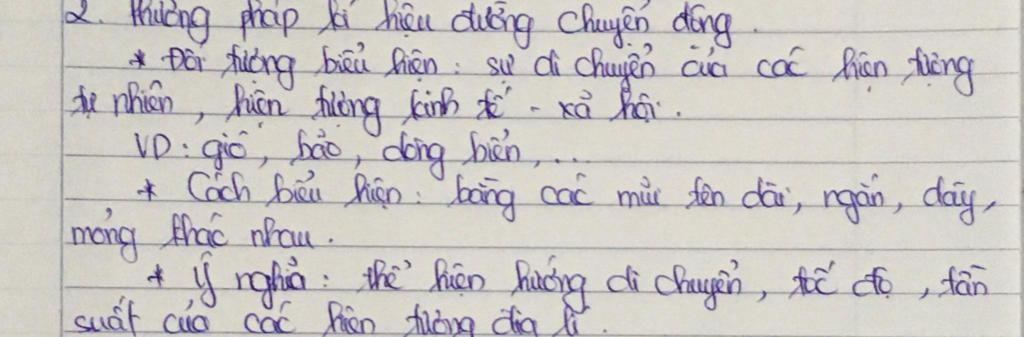 2. Phương pháp kí hiệu đường chuyển động.
* Đối tượng biểu hiện: sự di chuyển của các hiện tượng
tự nhiên, hiện tượng kinh tế - xã hội.
VD: gió, bão, dòng biển,...
* Cách biểu hiện: bằng các mũi tên dài, ngắn, dày,
mỏng khác nhau.
* Ý nghĩa: thể hiện hướng di chuyển, tốc độ, tần
suất của các hiện tượng địa lí.